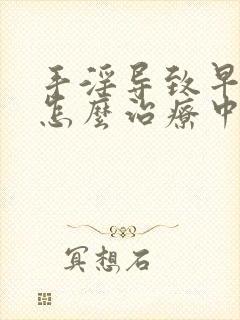 手淫导致早
怎麽治療中
冥想石